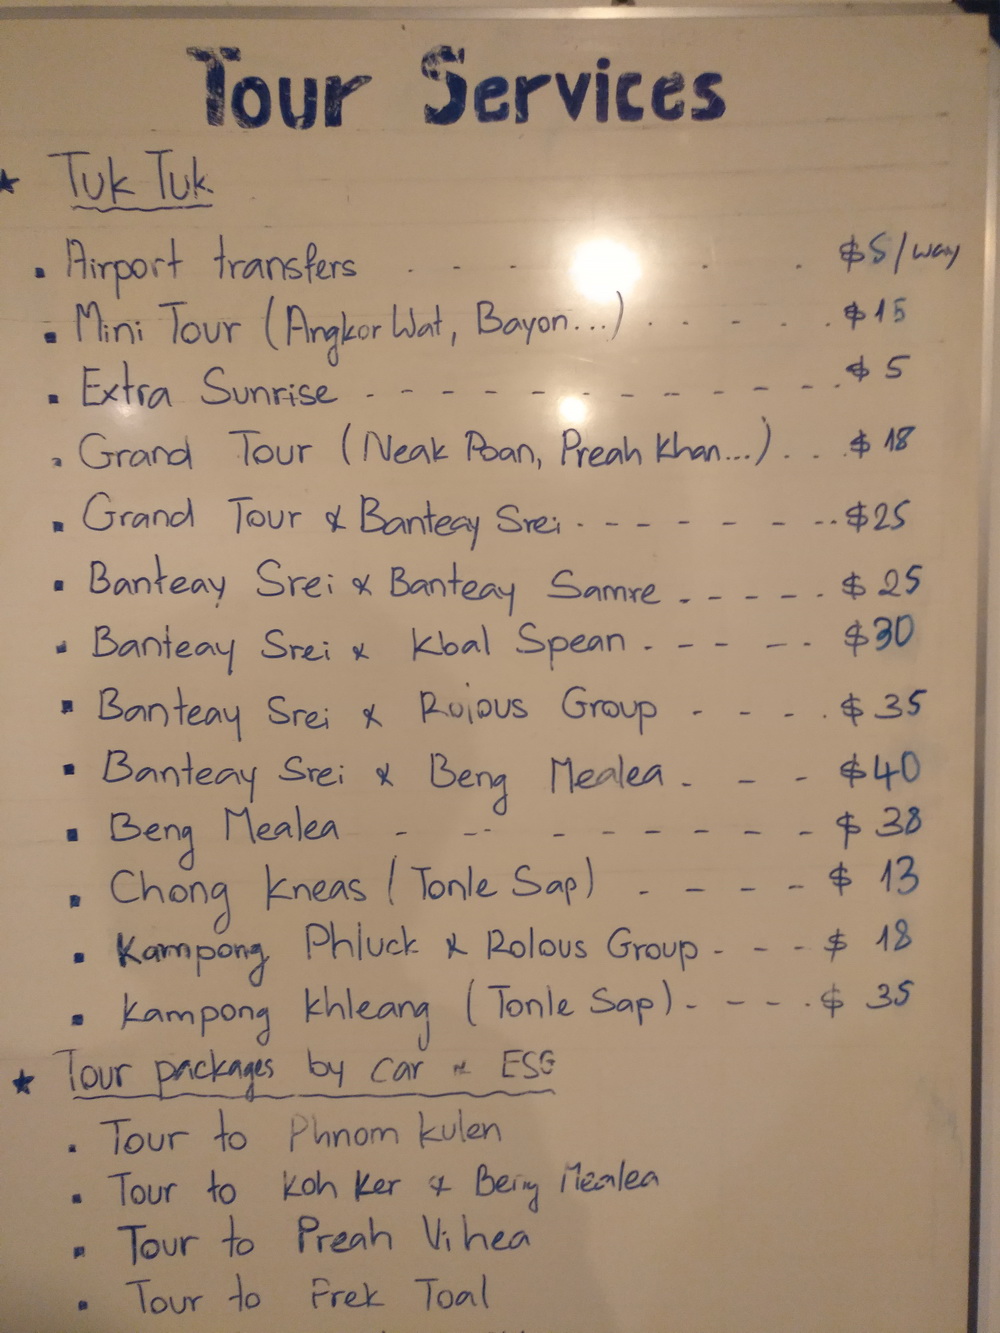 Tour Services
★ Tuk Tuk
▪ Airport transfers . - . - . . $5/way
▪ Mini Tour (Angkor Wat, Bayon...) . . - . - . $15
▪ Extra Sunrise - - - - - - - - - - - - . $5
▪ Grand Tour (Neak Poan, Preah Khan...) . . . $18
▪ Grand Tour & Banteay Srei - - - - - - - .. $25
▪ Banteay Srei & Banteay Samre . - - - - . $25
▪ Banteay Srei & Kbal Spean . - - - - . $30
▪ Banteay Srei & Roious Group - - - . $35
▪ Banteay Srei & Beng Mealea . - - - $40
▪ Beng Mealea - - - - - - - - - $38
▪ Chong Kneas (Tonle Sap) - - - - $13
▪ Kampong Phluck & Rolous Group - - - - $18
▪ Kampong Khleang (Tonle Sap) - - - - . $35
★ Tour packages by car & ESG
▪ Tour to Phnom Kulen
▪ Tour to Koh Ker & Beng Mealea
▪ Tour to Preah Vihea
▪ Tour to Prek Toal